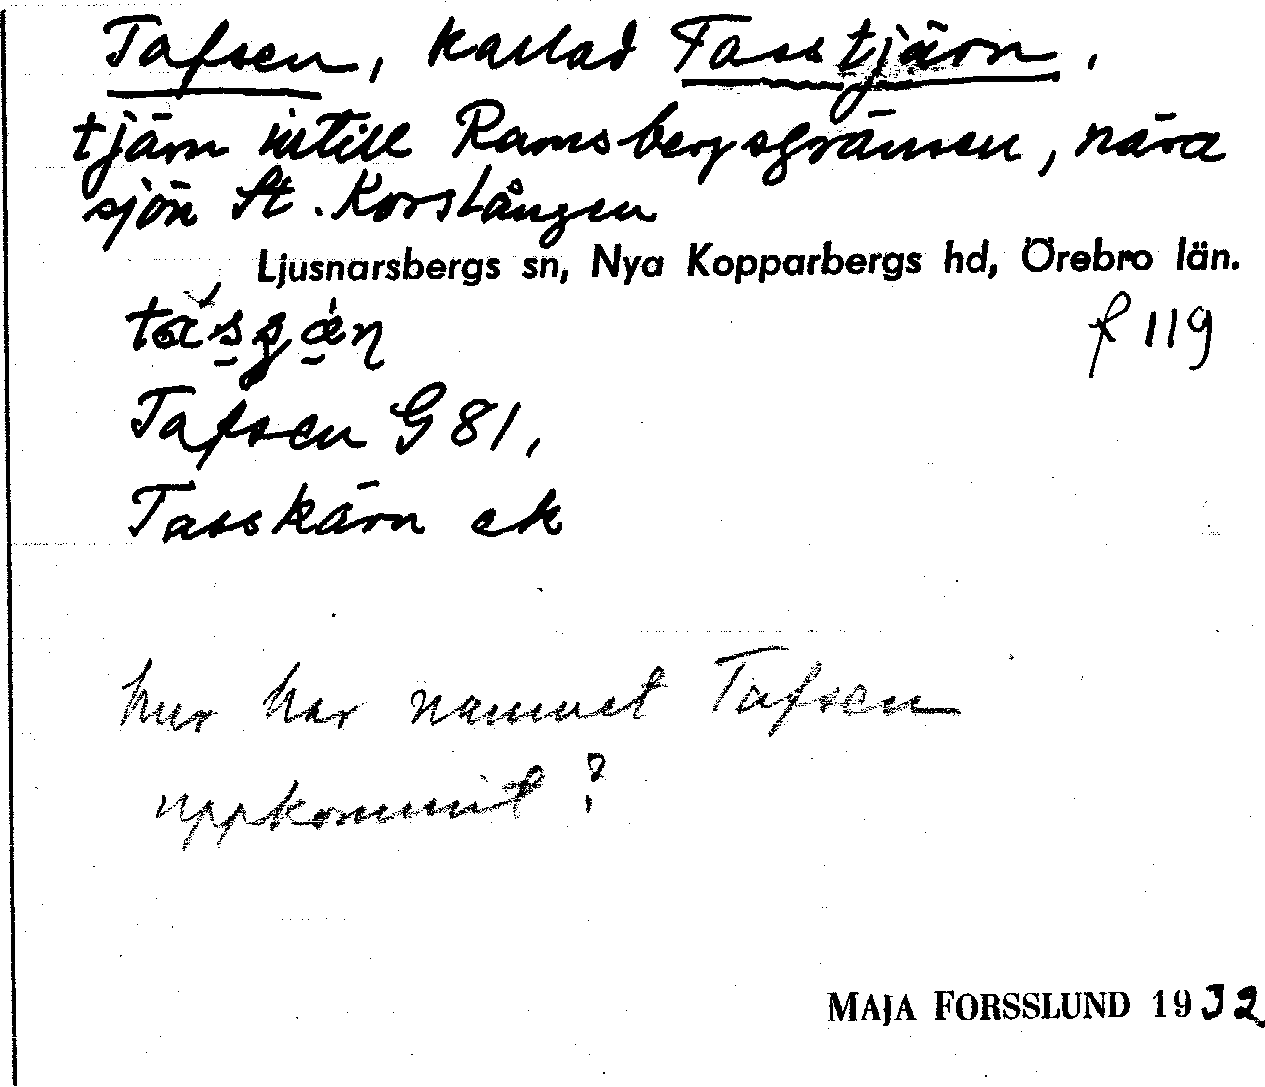 Tafsen, kallad Tasstjärn,
tjärn intill Ramsbergsgränsen, nära
sjön St. Korslången
Ljusnarsbergs sn, Nya Kopparbergs hd, Örebro län.
f 119
Tafsen G 81,
Tasskärn ek
hur har namnet Tafsen
uppkommit?
MAJA FORSSLUND 1932